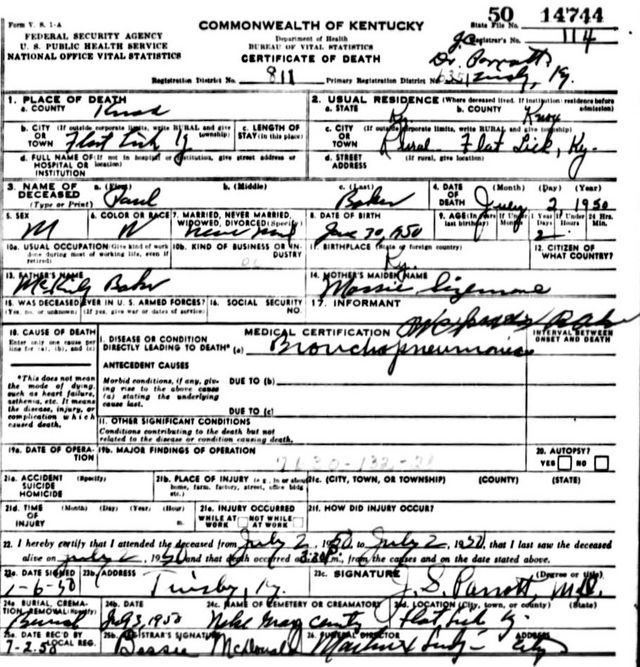 Form V. S. 1-A
COMMONWEALTH OF KENTUCKY
50 14744
State File No.
FEDERAL SECURITY AGENCY
Department of Health
Registrar's No. 114
U. S. PUBLIC HEALTH SERVICE
BUREAU OF VITAL STATISTICS
NATIONAL OFFICE VITAL STATISTICS
CERTIFICATE OF DEATH
Dr. Parrott
Registration District No. 811 Primary Registration District No.
1. PLACE OF DEATH
a. COUNTY Knox
2. USUAL RESIDENCE (Where deceased lived. If institution: residence before admission)
a. STATE Ky b. COUNTY Knox
b. CITY (If outside corporate limits, write RURAL and give township)
OR TOWN Flat Lick Ky
c. LENGTH OF STAY (in this place)
c. CITY (If outside corporate limits, write RURAL and give township)
OR TOWN Rural Flat Lick, Ky.
d. FULL NAME OF (If not in hospital or institution, give street address or location)
HOSPITAL OR INSTITUTION
d. STREET ADDRESS (If rural, give location)
3. NAME OF DECEASED (Type or Print)
a. (First) Paul
b. (Middle)
c. (Last) Baker
4. DATE OF DEATH (Month) (Day) (Year)
July 2 1950
5. SEX M
6. COLOR OR RACE W
7. MARRIED, NEVER MARRIED, WIDOWED, DIVORCED (Specify)
8. DATE OF BIRTH June 30, 1950
9. AGE (In years last birthday) If Under 1 Year Months Days If Under 24 Hrs. Hours Min.
2
10a. USUAL OCCUPATION (Give kind of work done during most of working life, even if retired)
10b. KIND OF BUSINESS OR INDUSTRY
11. BIRTHPLACE (State or foreign country)
Ky.
12. CITIZEN OF WHAT COUNTRY?
13. FATHER'S NAME
Baker
14. MOTHER'S MAIDEN NAME
Sizemore
15. WAS DECEASED EVER IN U. S. ARMED FORCES?
(Yes, no, or unknown) (If yes, give war or dates of service)
16. SOCIAL SECURITY NO.
17. INFORMANT
18. CAUSE OF DEATH
Enter only one cause per line for (a), (b), and (c)
MEDICAL CERTIFICATION
INTERVAL BETWEEN ONSET AND DEATH
I. DISEASE OR CONDITION DIRECTLY LEADING TO DEATH* (a) Bronchopneumonia
*This does not mean the mode of dying, such as heart failure, asthenia, etc. It means the disease, injury, or complication which caused death.
ANTECEDENT CAUSES
Morbid conditions, if any, giving rise to the above cause (a) stating the underlying cause last.
DUE TO (b)
DUE TO (c)
II. OTHER SIGNIFICANT CONDITIONS
Conditions contributing to the death but not related to the disease or condition causing death.
19a. DATE OF OPERATION
19b. MAJOR FINDINGS OF OPERATION
20. AUTOPSY?
YES NO
21a. ACCIDENT SUICIDE HOMICIDE (Specify)
21b. PLACE OF INJURY (e.g., in or about home, farm, factory, street, office bldg., etc.)
21c. (CITY, TOWN, OR TOWNSHIP) (COUNTY) (STATE)
21d. TIME OF INJURY (Month) (Day) (Year) (Hour) m.
21e. INJURY OCCURRED
WHILE AT WORK NOT WHILE AT WORK
21f. HOW DID INJURY OCCUR?
22. I hereby certify that I attended the deceased from July 2, 1950, to July 2, 1950, that I last saw the deceased
alive on July 2, 1950 and that death occurred m., from the causes and on the date stated above.
23a. DATE SIGNED
-6-50
23b. ADDRESS
Ky.
23c. SIGNATURE (Degree or title)
J. S. Parrott, M.D.
24a. BURIAL, CREMATION, REMOVAL (Specify)
Burial
24b. DATE
July 3, 1950
24c. NAME OF CEMETERY OR CREMATORY
24d. LOCATION (City, town, or county) (State)
Flat Lick Ky.
25a. DATE REC'D BY LOCAL REG.
7-2-50
25b. REGISTRAR'S SIGNATURE
Bessie McDonald
26. FUNERAL DIRECTOR ADDRESS